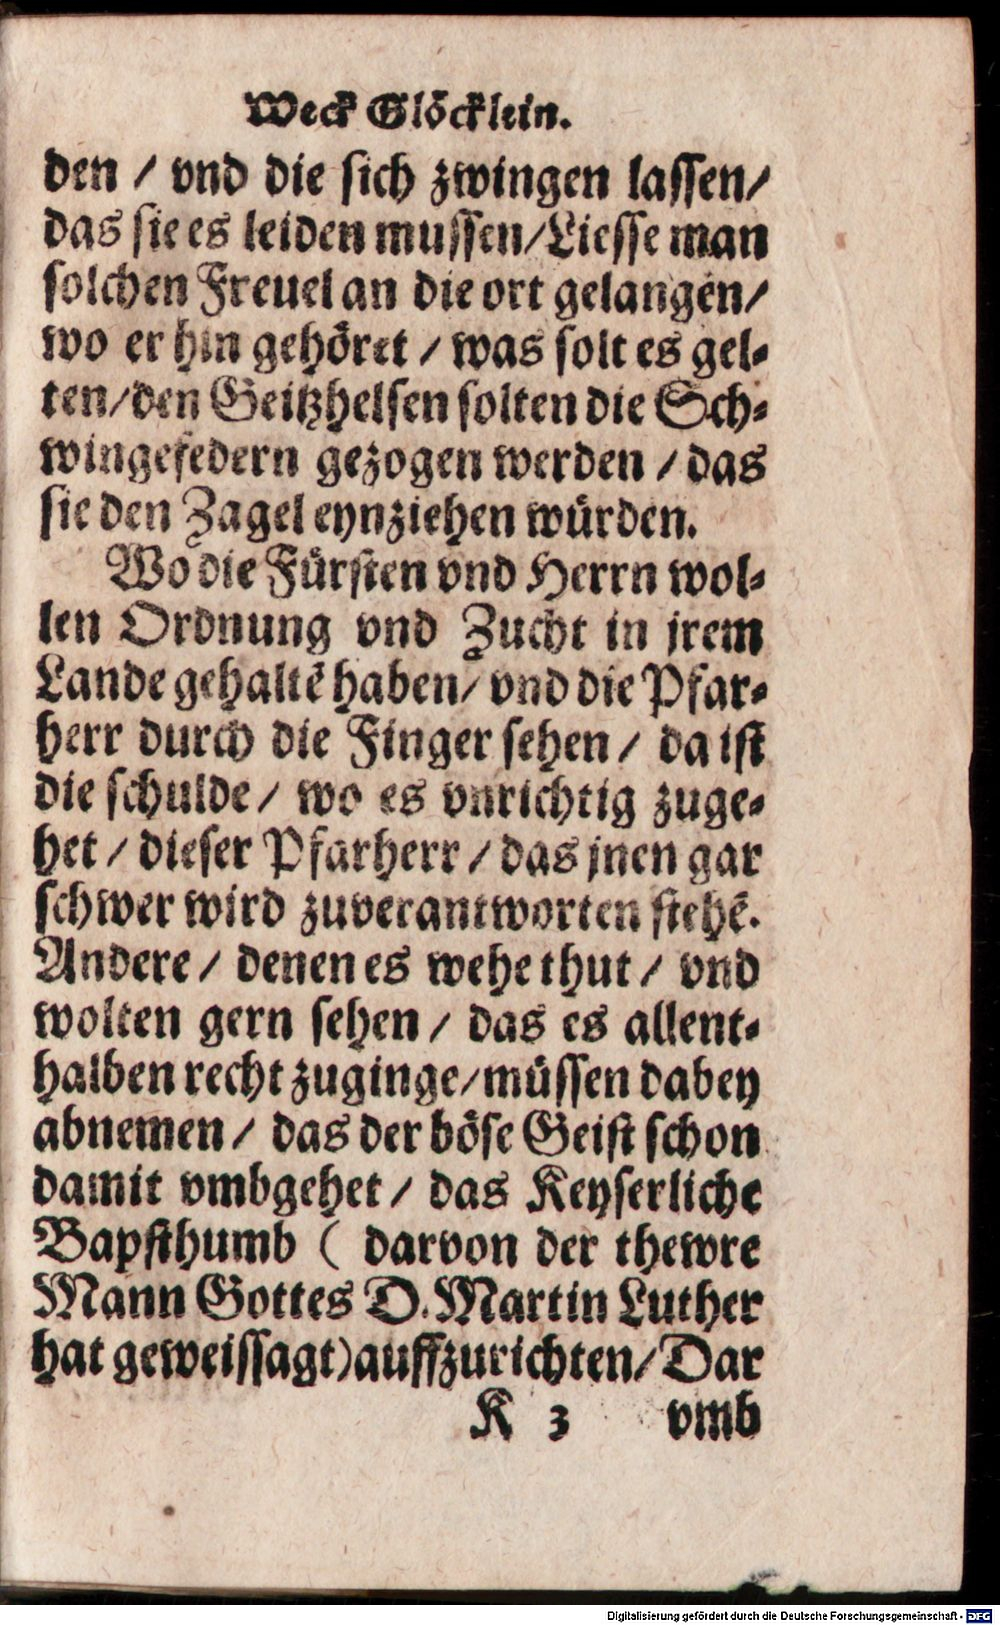 Weck Glöcklein.
den / vnd die sich zwingen lassen/
das sie es leiden mussen/Liesse man
solchen Freuel an die ort gelangen/
wo er hin gehöret / was solt es gel-
ten/den Geitzhelsen solten die Sch-
wingefedern gezogen werden / das
sie den Zagel eynziehen würden.
Wo die Fürsten vnd Herrn wol-
len Ordnung vnd Zucht in jrem
Lande gehaltē haben/ vnd die Pfar-
herr durch die Finger sehen / da ist
die schulde / wo es vnrichtig zuge-
het / dieser Pfarherr / das jnen gar
schwer wird zuverantworten stehē.
Andere / denen es wehe thut / vnd
wolten gern sehen / das es allent-
halben recht zuginge/müssen dabey
abnemen / das der böse Geist schon
damit vmbgehet / das Keyserliche
Bapsthumb ( darvon der thewre
Mann Gottes D. Martin Luther
hat geweissagt)auffzurichten/Dar
K 3 vmb
Digitalisierung gefördert durch die Deutsche Forschungsgemeinschaft - DFG